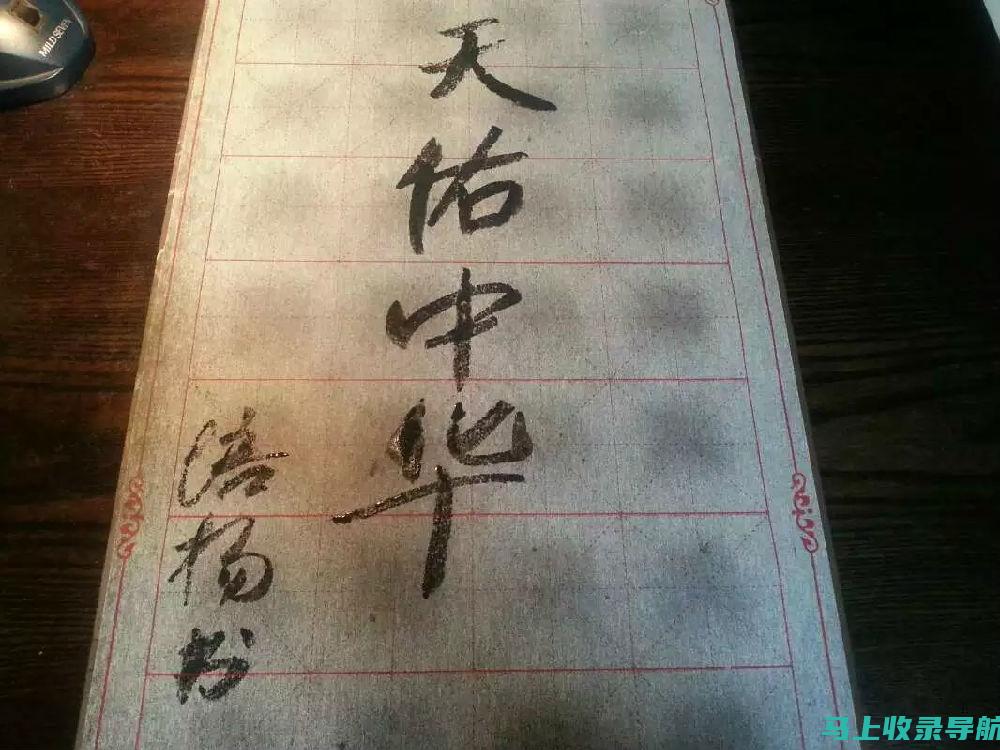 天佑中华
涪扬书
MILD SEVEN
马上收录导航